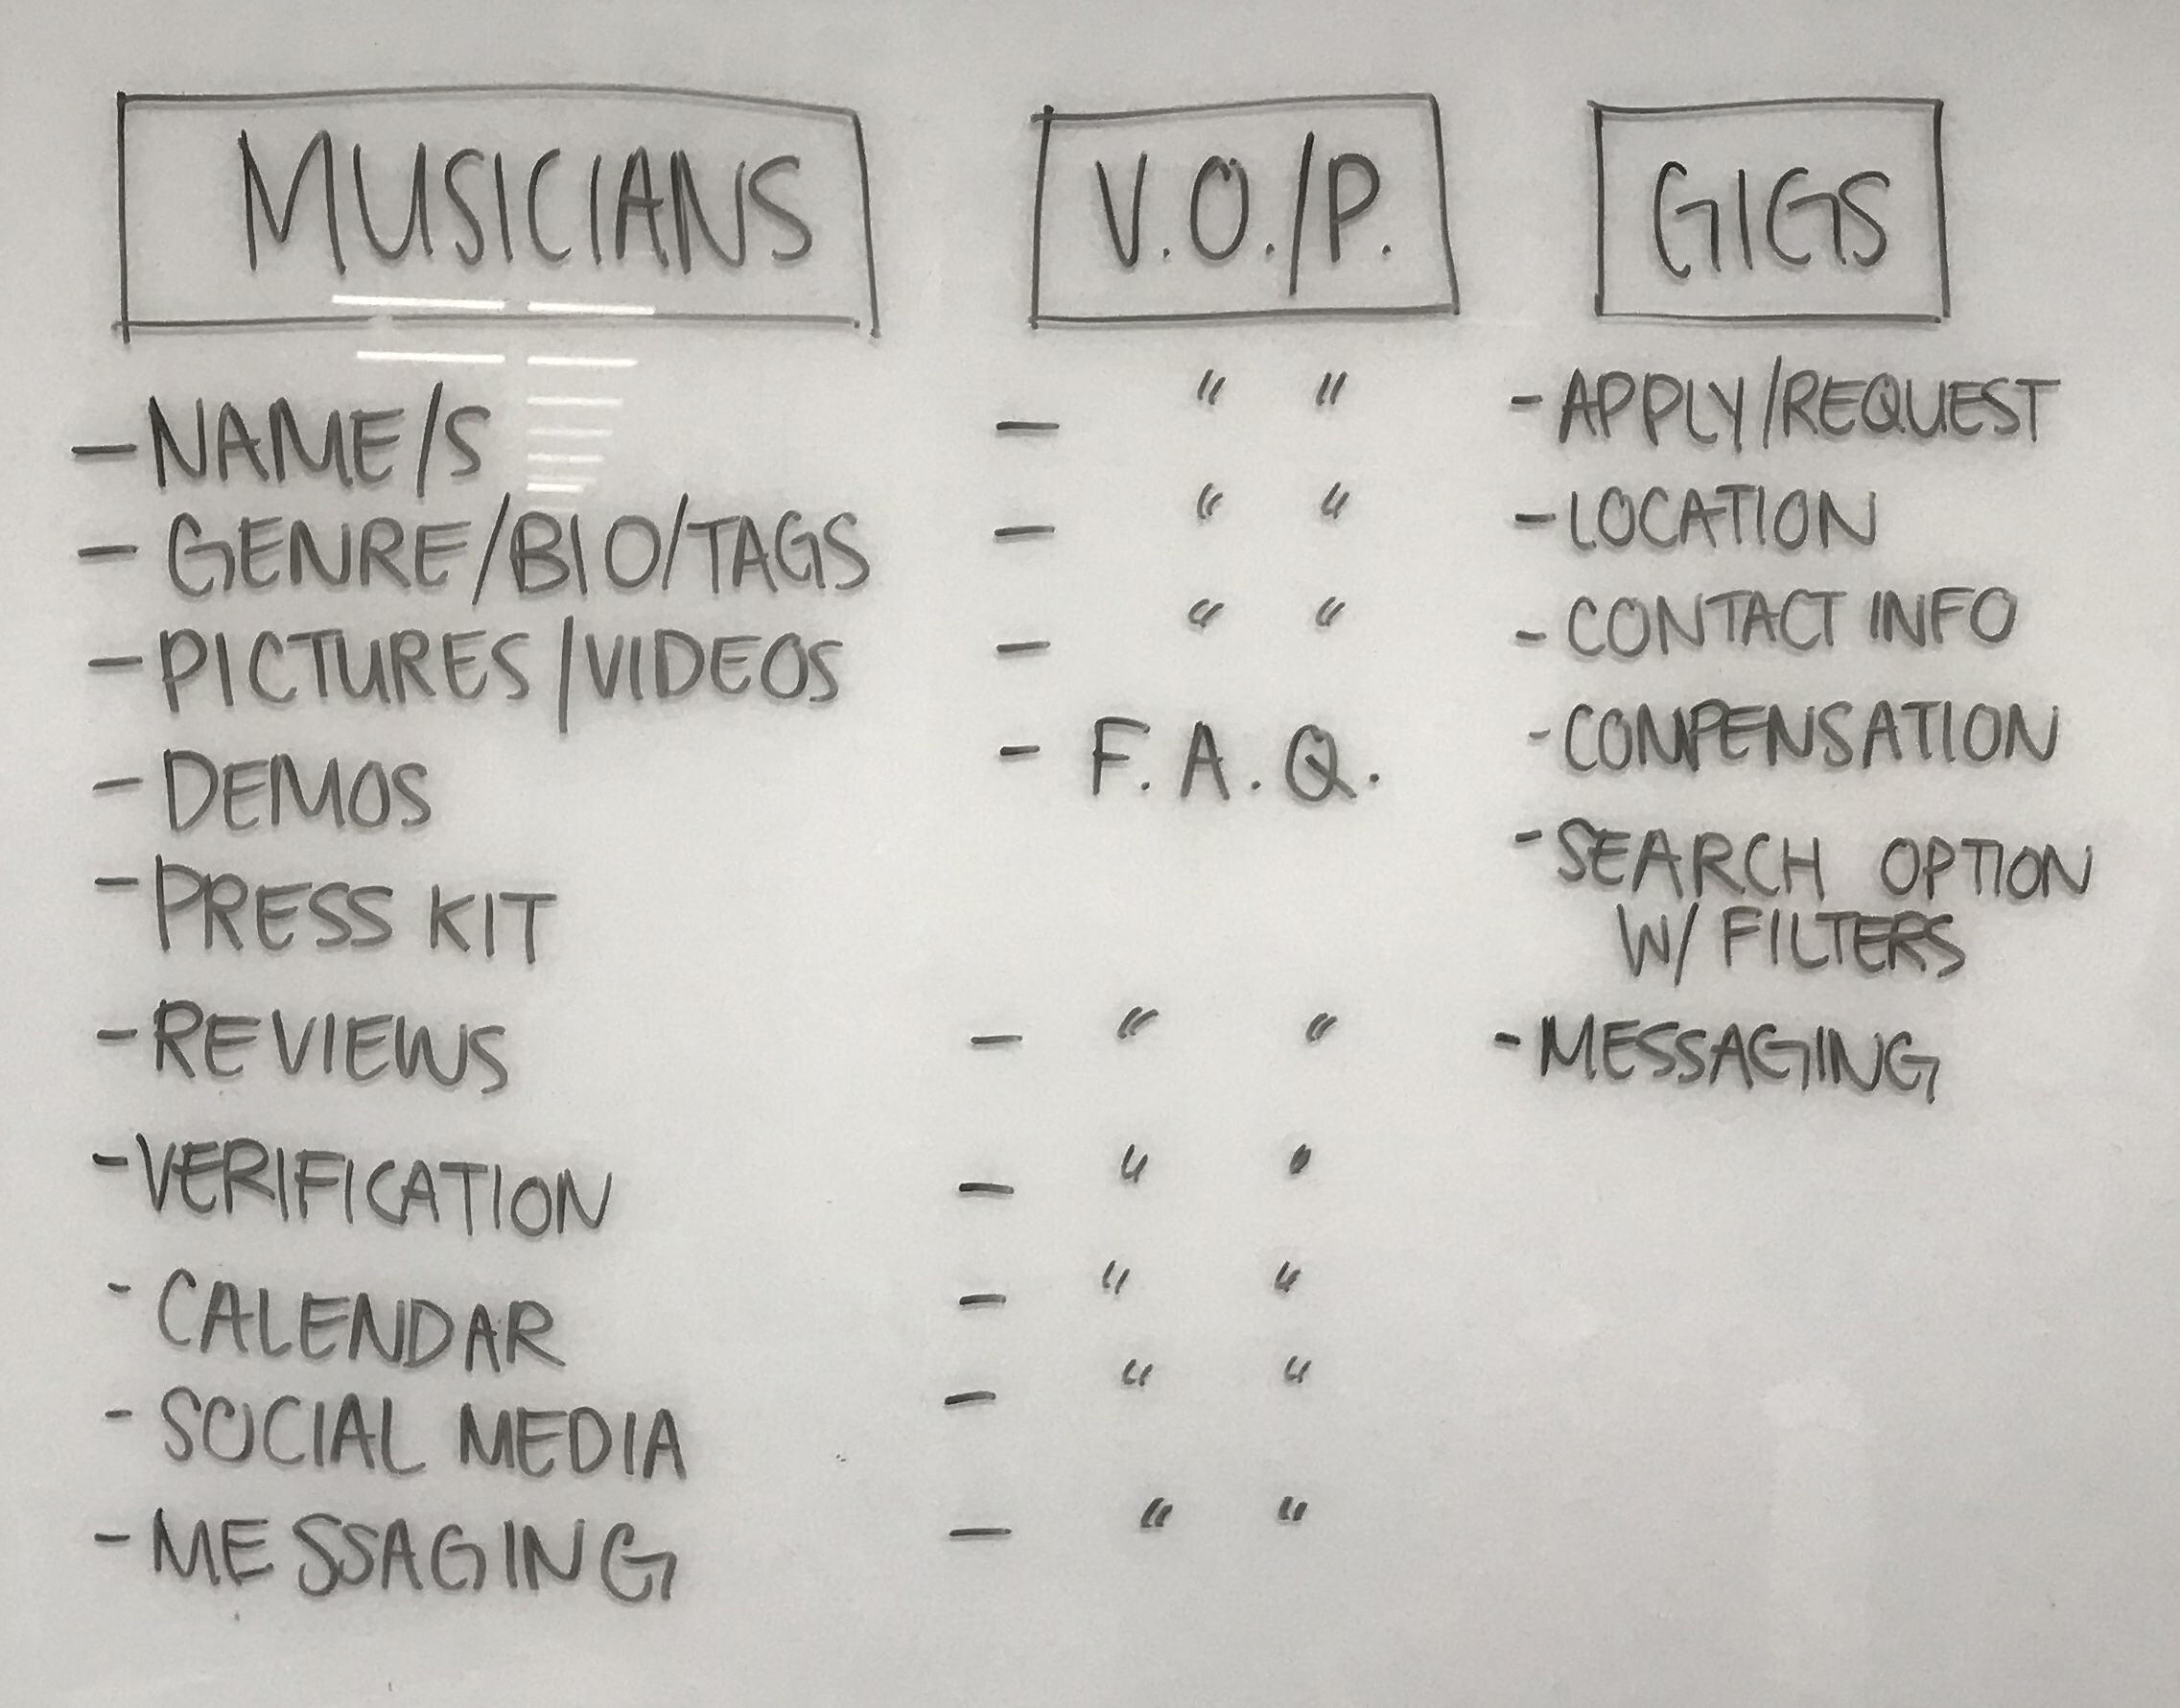 MUSICIANS
- NAME/S
- GENRE/BIO/TAGS
- PICTURES/VIDEOS
- DEMOS
- PRESS KIT
- REVIEWS
- VERIFICATION
- CALENDAR
- SOCIAL MEDIA
- MESSAGING
V.O./P.
- " "
- " "
- " "
- F.A.Q.
- " "
- " "
- " "
- " "
- " "
GIGS
- APPLY/REQUEST
- LOCATION
- CONTACT INFO
- COMPENSATION
- SEARCH OPTION
W/ FILTERS
- MESSAGING